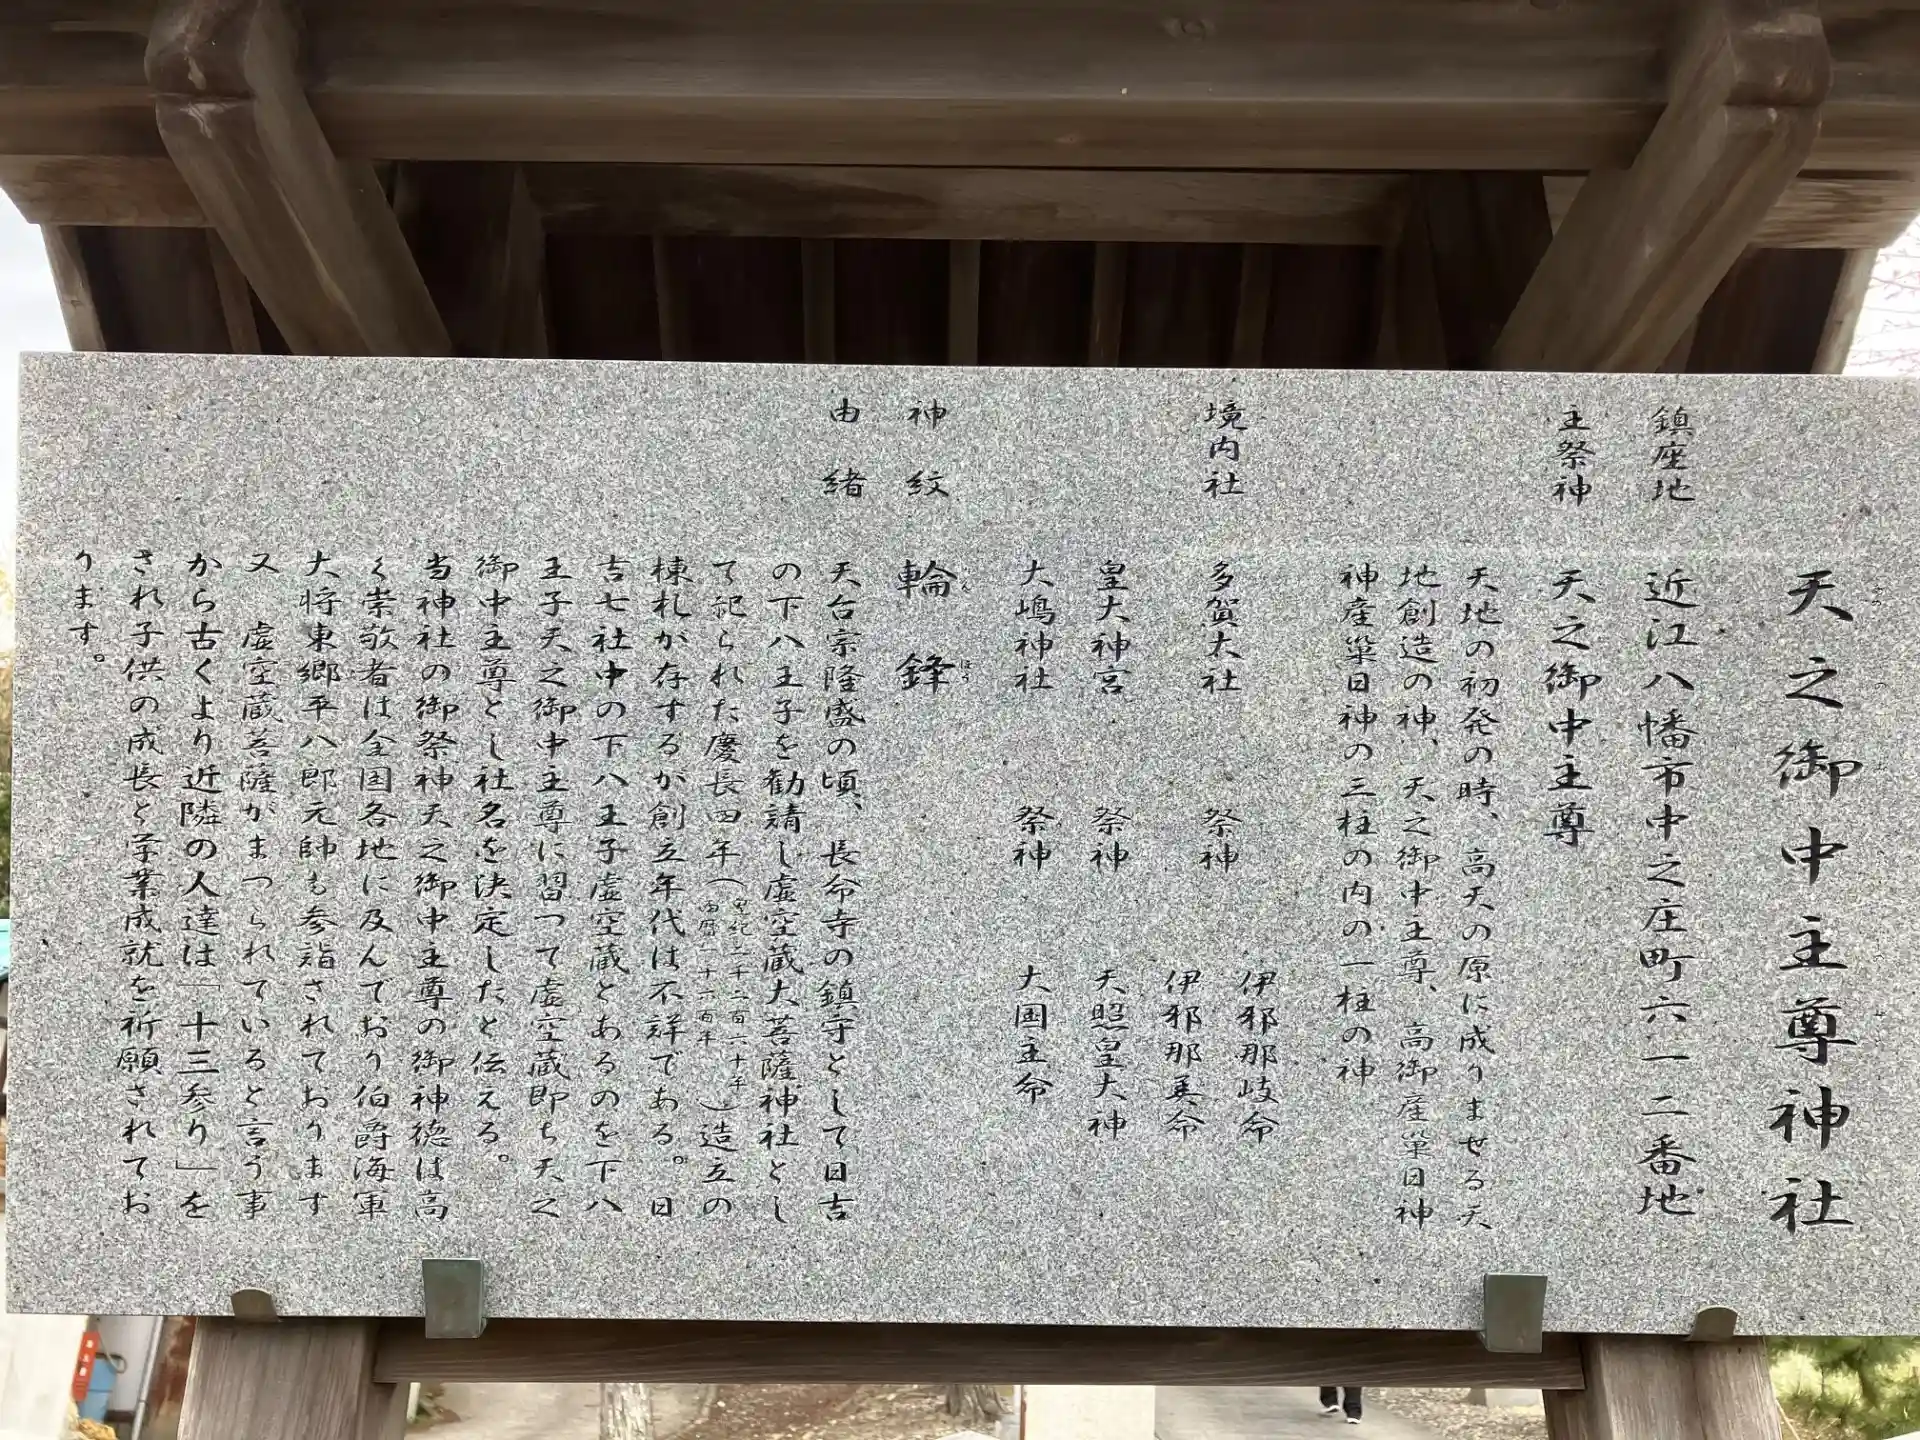 天之御中主尊神社
鎮座地 近江八幡市中之庄町六一二番地
主祭神 天之御中主尊
天地の初発の時、高天の原に成りませる天
地創造の神、天之御中主尊、高御産巣日神
神産巣日神の三柱の内の一柱の神
境内社 多賀大社 祭神 伊邪那岐命
伊邪那美命
皇大神宮 祭神 天照皇大神
大嶋神社 祭神 大国主命
神紋 輪鋒
由緒 天台宗隆盛の頃、長命寺の鎮守として日吉
の下八王子を勧請し虚空蔵大菩薩神社とし
て祀られた慶長四年（皇紀二千二百六十年
西暦一千六百年）造立の
棟札が存するが創立年代は不詳である。日
吉七社中の下八王子虚空蔵とあるのを下八
王子天之御中主尊に習つて虚空蔵即ち天之
御中主尊とし社名を決定したと伝える。
当神社の御祭神天之御中主尊の御神徳は高
く崇敬者は全国各地に及んでおり伯爵海軍
大将東郷平八郎元帥も参詣されております
又 虚空蔵菩薩がまつられていると言う事
から古くより近隣の人達は「十三参り」を
され子供の成長と学業成就を祈願されてお
ります。